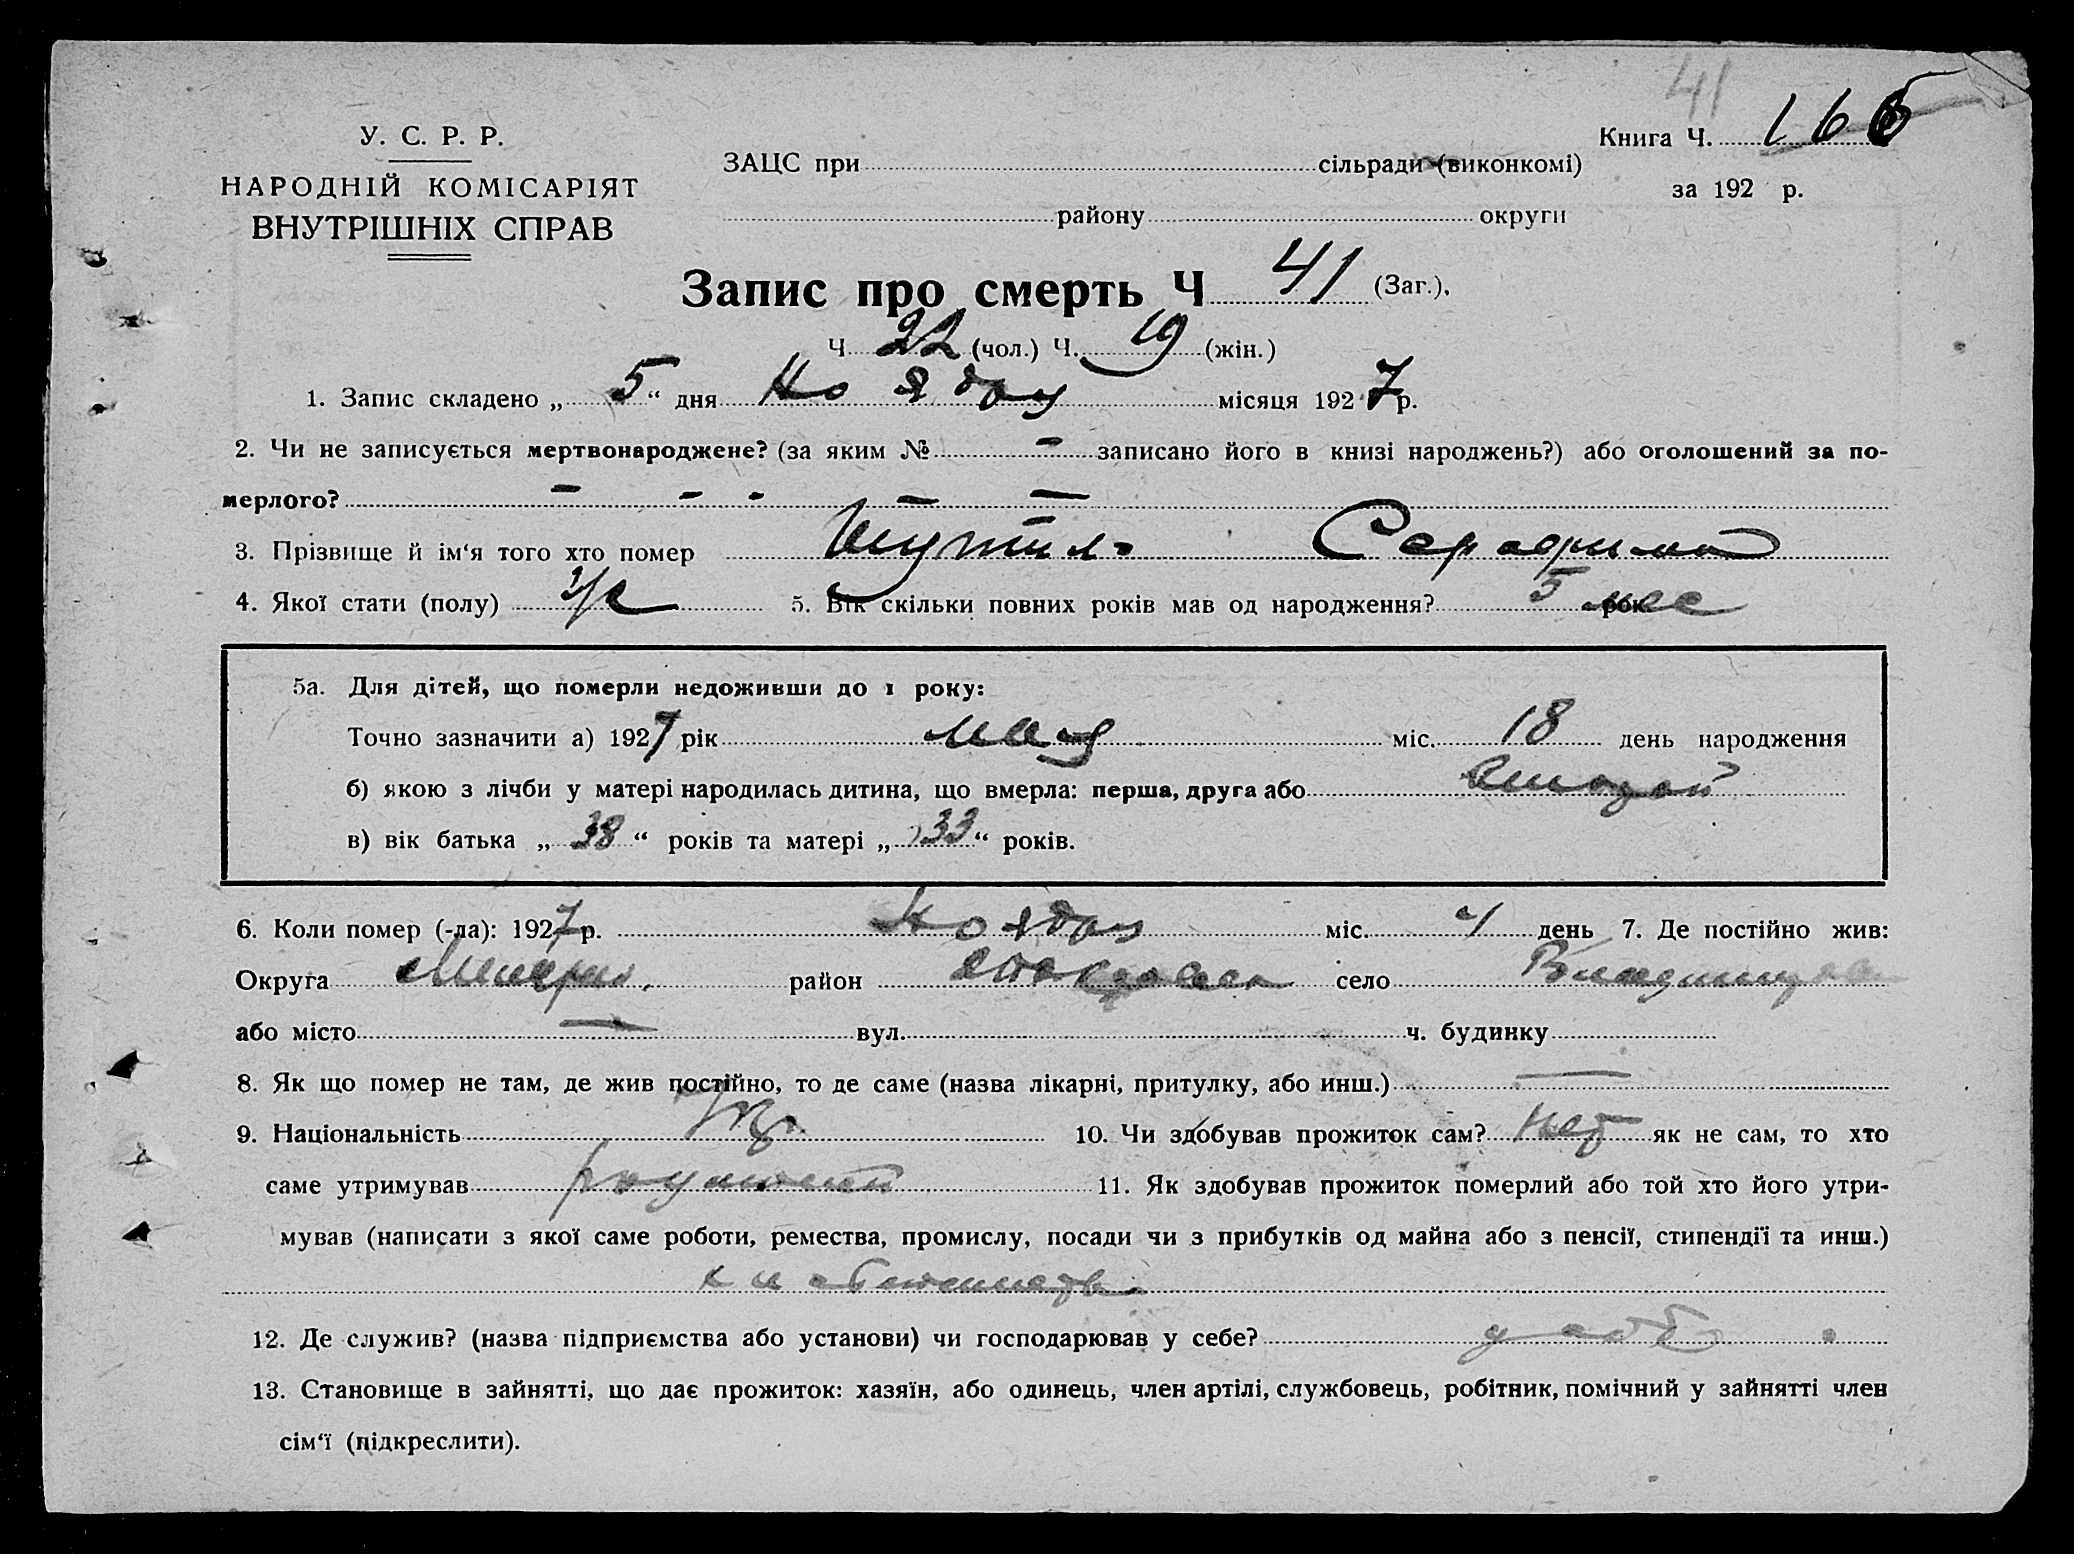 41
У. С. Р. Р.
НАРОДНІЙ КОМІСАРІЯТ
ВНУТРІШНІХ СПРАВ
Книга Ч. 166
за 192 р.
ЗАЦС при сільради (виконкомі)
району округи
Запис про смерть Ч 41 (Заг.),
Ч 22 (чол.) Ч. 19 (жін.)
1. Запис складено „ 5 “ дня Ноября місяця 1927 р.
2. Чи не записується мертвонароджене? (за яким № – записано його в книзі народжень?) або оголошений за по-
мерлого? – – - – –
3. Прізвище й ім‘я того хто помер Серафима
4. Якої стати (полу) ж 5. Вік скільки повних років мав од народження? 5 мес рок.
5а. Для дітей, що померли недоживши до 1 року:
Точно зазначити а) 1927 рік мая міс. 18 день народження
б) якою з лічби у матері народилась дитина, що вмерла: перша, друга або шостой
в) вік батька „ 38 “ років та матері „ 33 “ років.
6. Коли помер (-ла): 1927 р. Ноября міс. 4 день 7. Де постійно жив:
Округа район село
або місто — вул. ч. будинку
8. Як що помер не там, де жив постійно, то де саме (назва лікарні, притулку, або инш.) —
9. Національність Укр 10. Чи здобував прожиток сам? нет як не сам, то хто
саме утримував родители 11. Як здобував прожиток померлий або той хто його утри-
мував (написати з якої саме роботи, ремества, промислу, посади чи з прибутків од майна або з пенсії, стипендії та инш.)
12. Де служив? (назва підприємства або установи) чи господарював у себе? у себе
13. Становище в зайнятті, що дає прожиток: хазяїн, або одинець, член артілі, службовець, робітник, помічний у зайнятті член
сім‘ї (підкреслити).